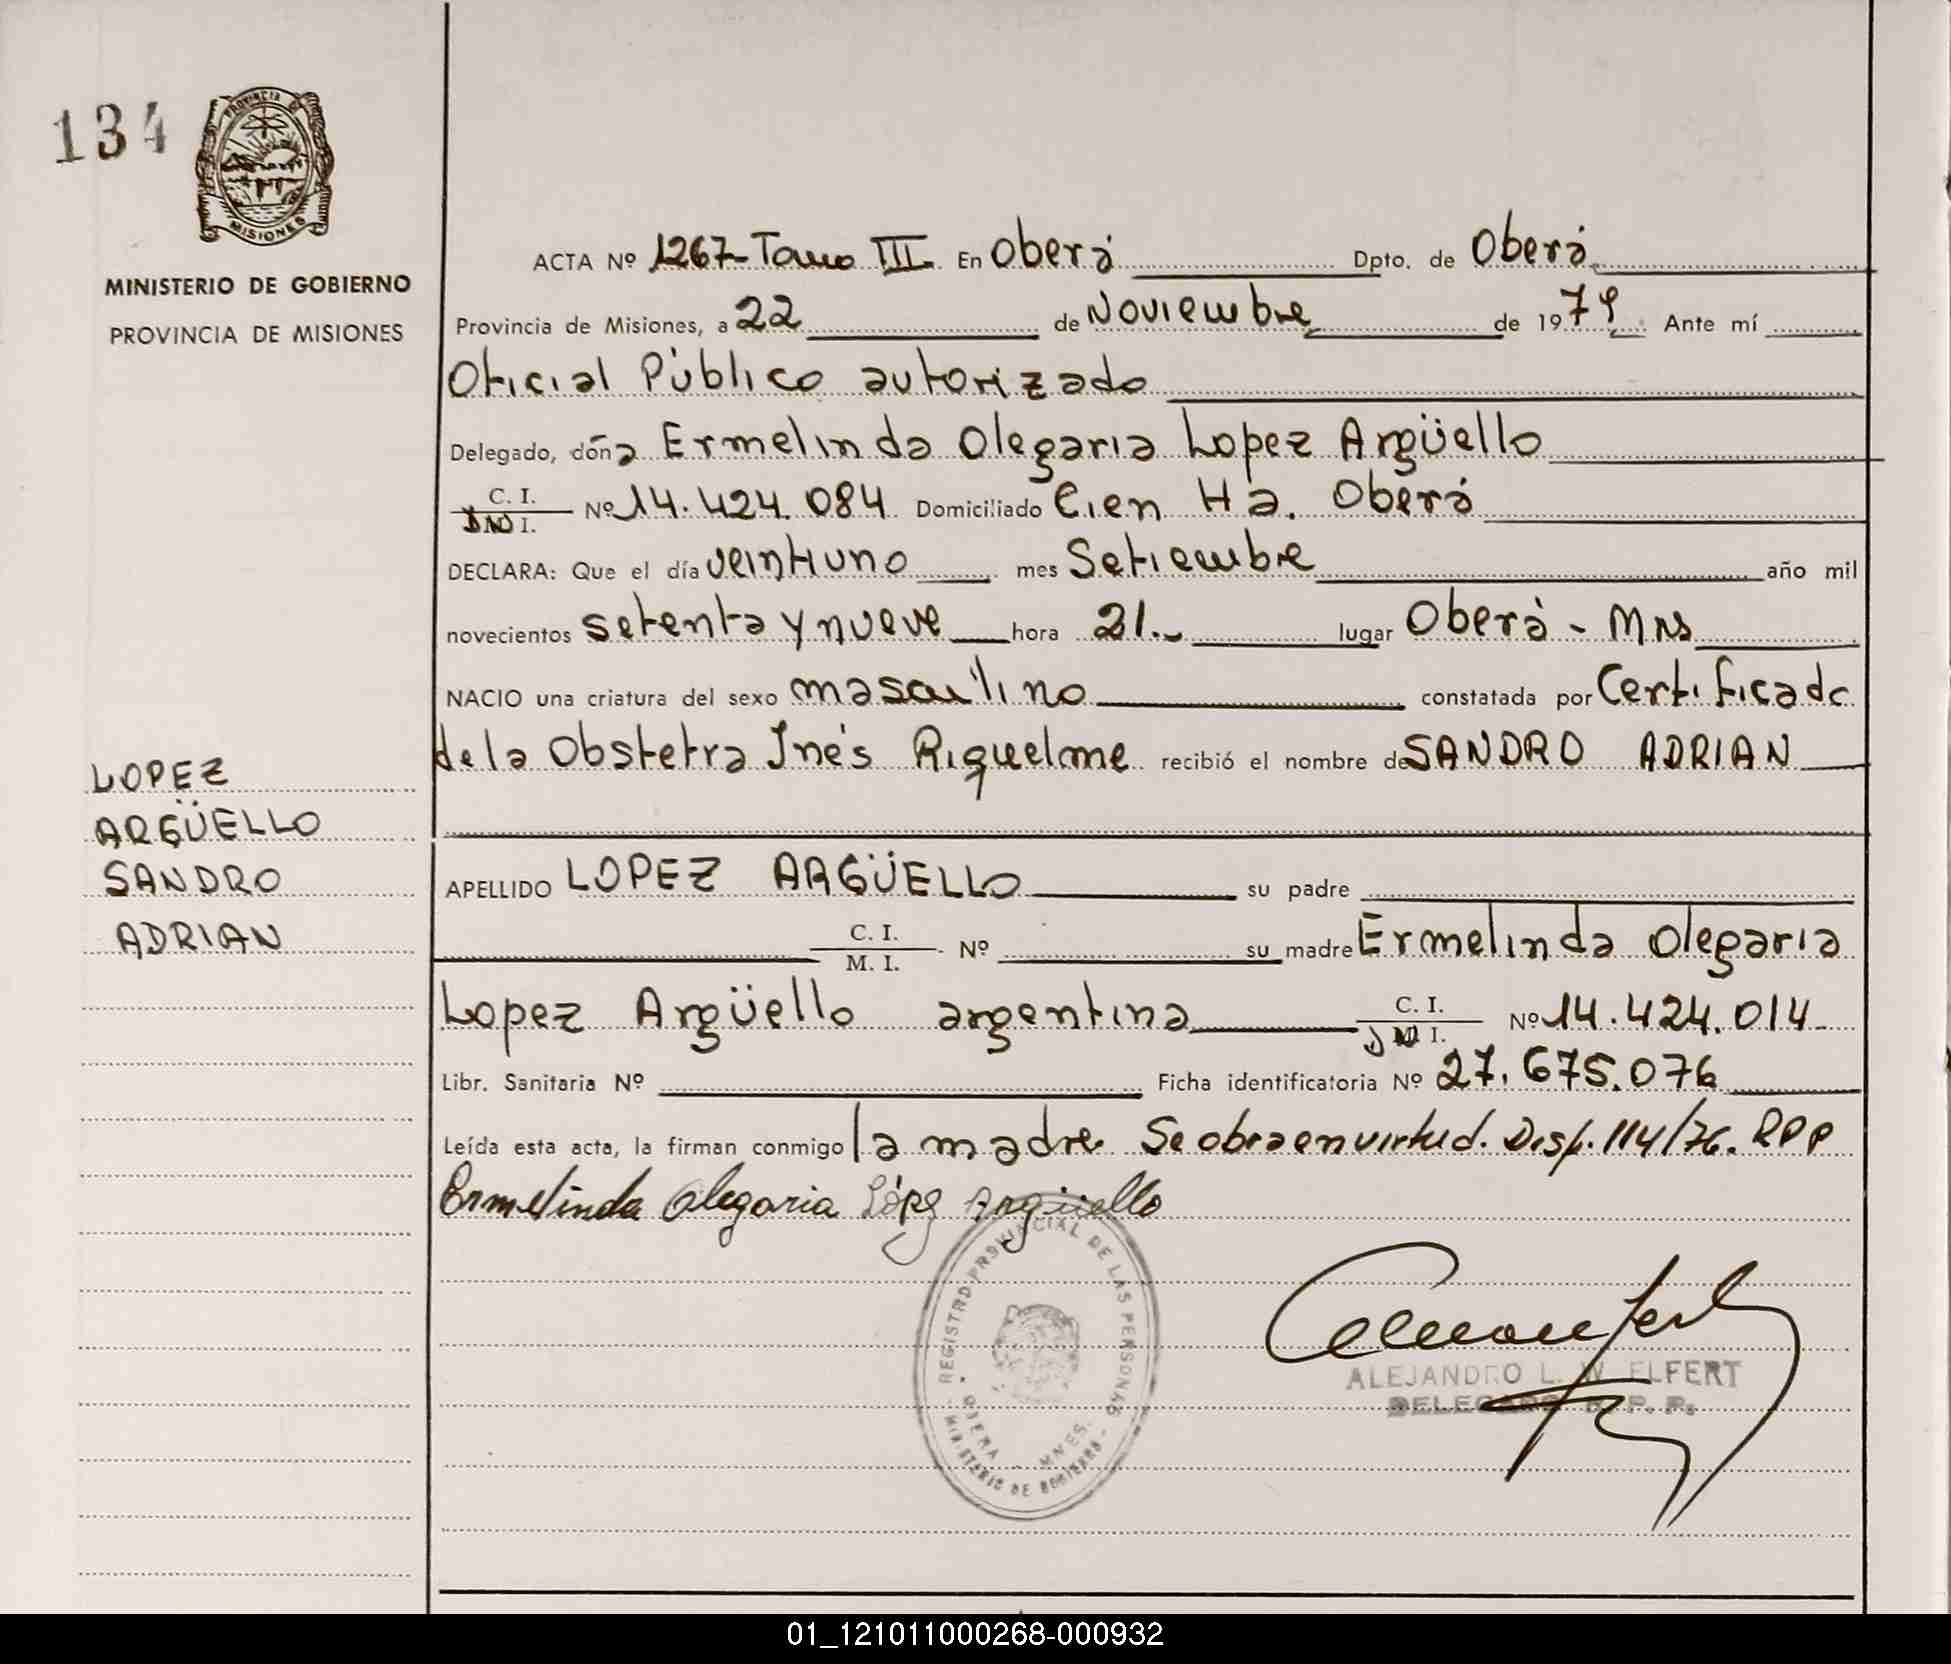 134
PROVINCIA DE
MISIONES
MINISTERIO DE GOBIERNO
PROVINCIA DE MISIONES
ACTA Nº 1267-Tomo III En Oberá Dpto. de Oberá
Provincia de Misiones, a 22 de Noviembre de 1979 Ante mí
Oficial Público autorizado
Delegado, dóña Ermelinda Olegaria Lopez Argüello
C. I. DN I. Nº 14.424.084 Domiciliado Cien Ha. Oberá
DECLARA: Que el día veintiuno mes Setiembre año mil
novecientos setenta y nueve hora 21.- lugar Oberá - Mns
NACIO una criatura del sexo masculino constatada por Certificado
de la Obstetra Inés Riquelme recibió el nombre de SANDRO ADRIAN
LOPEZ
ARGÜELLO
SANDRO
ADRIAN
APELLIDO LOPEZ ARGÜELLO su padre
C. I. M. I. Nº su madre Ermelinda Olegaria
Lopez Argüello argentina C. I. DN I. Nº 14.424.014
Libr. Sanitaria Nº Ficha identificatoria Nº 27.675.076
Leída esta acta, la firman conmigo la madre Se obra en virtud. Disp. 114/76. RPP
Ermelinda Olegaria López Argüello
REGISTRO PROVINCIAL DE LAS PERSONAS
OBERA - MNES.
MINISTERIO DE GOBIERNO
ALEJANDRO L. W. ELFERT
DELEGADO R. P. P.
01_121011000268-000932